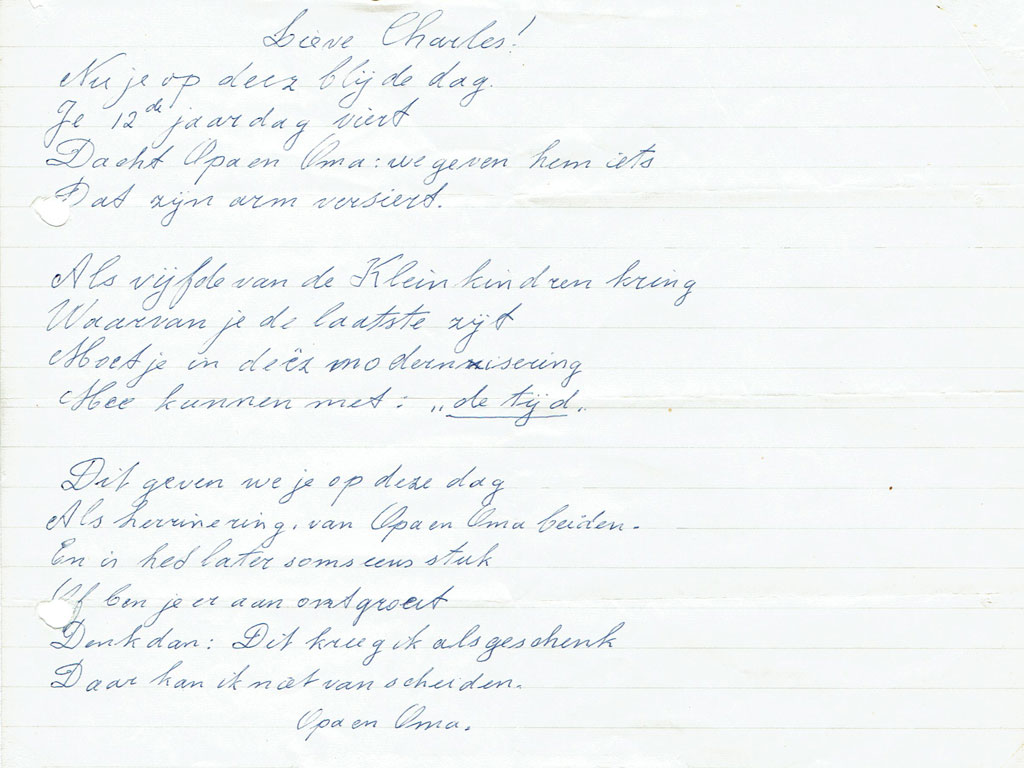 Lieve Charles!
Nu je op deez blijde dag.
Je 12de jaardag viert
Dacht Opa en Oma: we geven hem iets
Dat zijn arm versiert.
Als vijfde van de Kleinkindren kring
Waarvan je de laatste zijt
Moet je in deéz modernisering
Mee kunnen met: „de tijd„
Dit geven we je op deze dag
Als herrinering. van Opa en Oma beiden.
En is hed later soms eens stuk
Of ben je er aan ontgroeit
Denk dan: Dit kreeg ik als geschenk
Daar kan ik niet van scheiden.
Opa en Oma.